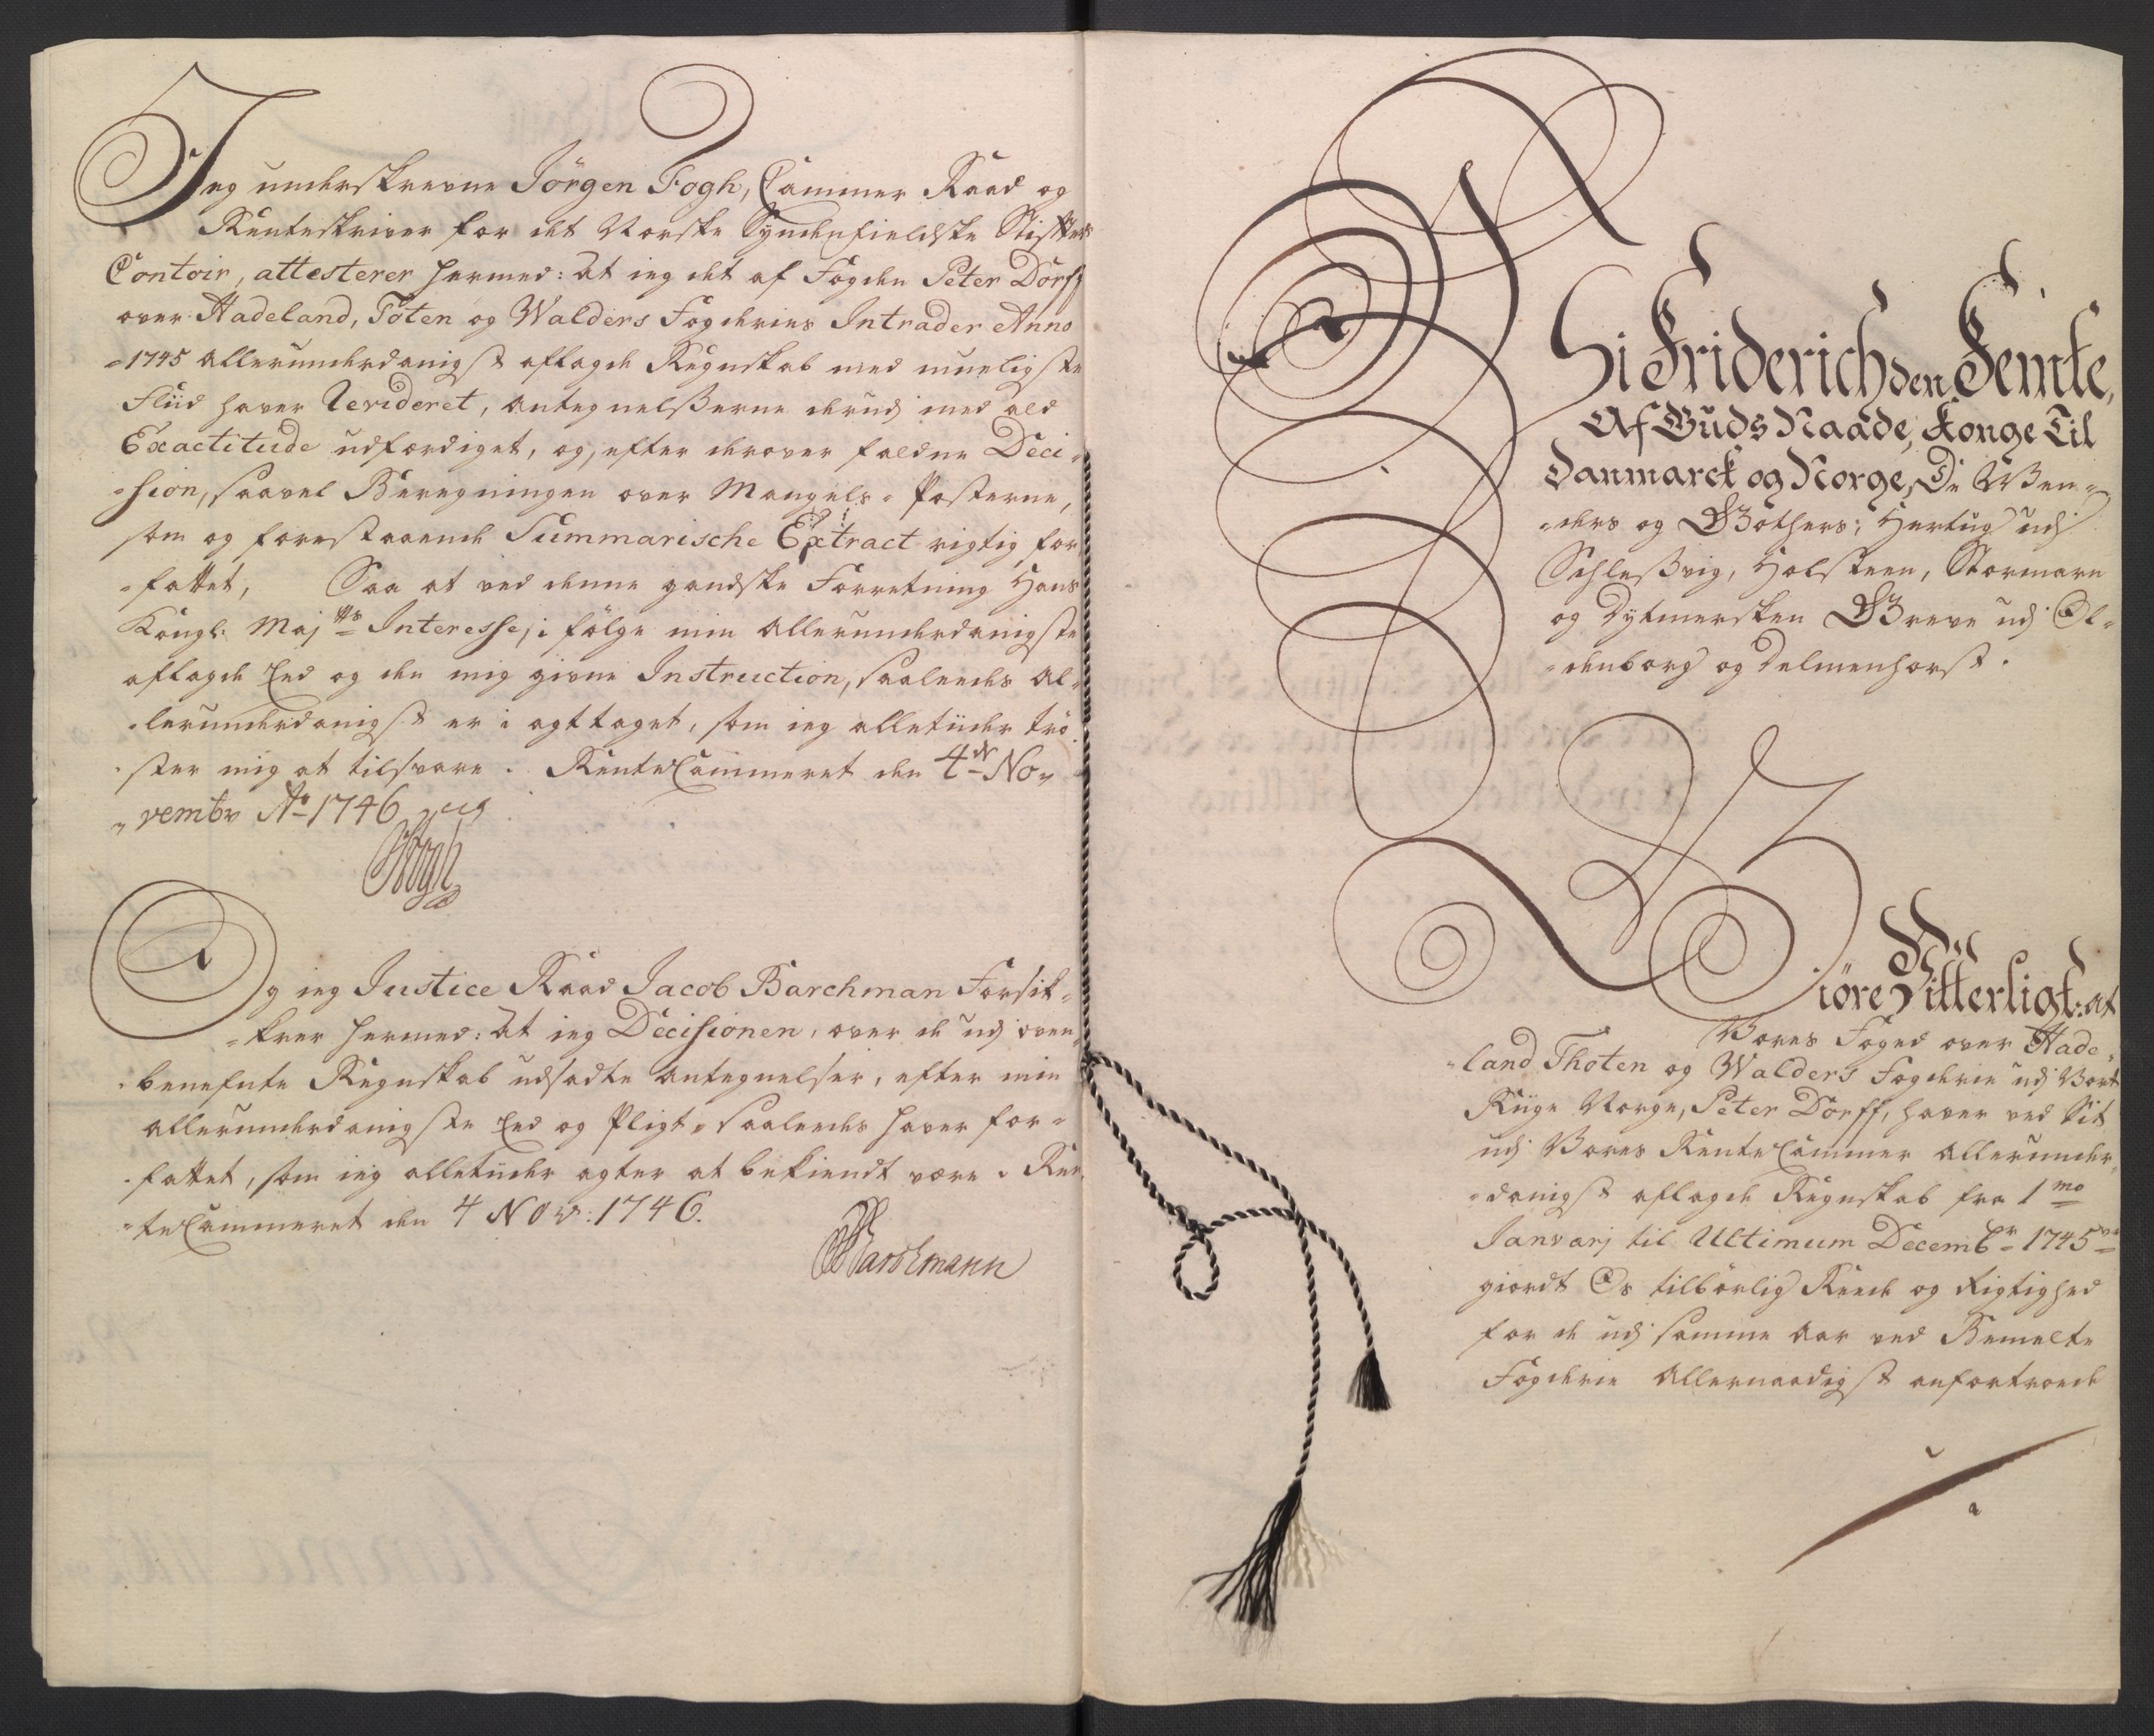 Jeg underskrevne Jörgen Fogh, Cammer Raad og
Renteskriver for det Norske Syndenfieldske Stifters
Contoir, attesterer hermed: At ieg det af Fogden Peter Dorff
over Hadeland, Toten og Walders Fogderies Intrader Anno
1745 allerunderdanigst aflagde Regnskab med mueligste
Fliid haver Revideret, Antegnelsserne derudj med ald
Exactitude udferdiget, og, efter derover faldne Deci-
-sion, saavel Beregningen over Mangels-Posterne,
som og forestaaende Summarische Extract rigtig for-
-fattet, Saa at ved denne gandske Forretning Hans
Kongl: Majts Interesse, i fölge min allerunderdanigste
aflagde Eed og den mig givne Instruction, saaleedes al-
-lerunderdanigst er i agttaget, som ieg alletiider trö-
-ster mig at tilsvare. RenteCammeret den 4de No-
-vembr Ao 1746
JFogh
Og ieg Justice Raad Jacob Barchman Forsik-
-krer hermed: At ieg Decisionen, over de udj oven-
-benefnte Regnskab udsadte Antegnelser, efter min
allerunderdanigste Eed og Pligt, saaleedes haver for-
-fattet, som ieg alletiider agter at bekiendt være. Ren-
-teCammeret den 4 Nov: 1746.
Barchmann
Wi Friderich den Femte,
Af Guds Naade, Konge Til
Danmarck og Norge, De Wen-
-ders og Gothers; Hertug udj
Schlessvig, Holsteen, Stormarn
og Dytmersken Greve udj Ol-
-denborg og Delmenhorst.
Giöre Vitterligt: At
Vores Foged over Hade-
-land Thoten og Walders Fogderie udj Vort
Riige Norge, Peter Dorff, haver ved Sit
udj Vores RenteCammer allerunder-
-danigst aflagde Regnskab fra 1mo
Januarj til Ultimum Decembr 1745
giordt Os tilbörlig Reede og Rigtighed
for de udj samme Aar ved Bemelte
Fogderie Allernaadigst anfortroede